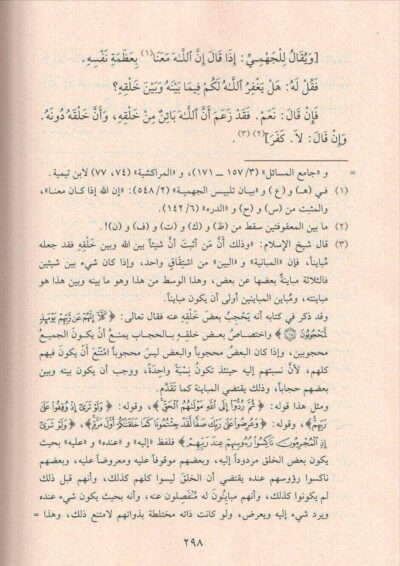 [وَيُقَالُ لِلْجَهْمِيِّ: إِذَا قَالَ إِنَّ اللَّـهَ مَعَنَا(١) بِعَظَمَةِ نَفْسِهِ.
فَقُلْ لَهُ: هَلْ يَغْفِرُ اللَّـهُ لَكُمْ فِيمَا بَيْنَهُ وَبَيْنَ خَلْقِهِ؟
فَإِنْ قَالَ: نَعَمْ. فَقَدْ زَعَمَ أَنَّ اللَّـهَ بَائِنٌ مِنْ خَلْقِهِ، وَأَنَّ خَلْقَهُ دُونَهُ.
وَإِنْ قَالَ: لاَ. كَفَرَ](٢) (٣).
= و «جامع المسائل» (٣/ ١٥٧ ــ ١٧١)، و «المراكشية» (٧٤، ٧٧) لابن تيمية.
(١) في (هـ) و (ع) و «بيان تلبيس الجهمية» (٢/ ٥٤٨): «إن الله إذا كان معنا»، والمثبت من (س) و (ح) و «الدرء» (٦/ ١٤٢).
(٢) ما بين المعقوفتين سقط من (ظ) و (ك) و (ت) و (ف) و (ن)!.
(٣) قال شيخ الإسلام: «وذلك أنَّ مَن أثبتَ أنَّ شيئاً بين الله وبين خَلْقِهِ فقد جعله
مُبايناً، فإن «المباينة» و «البين» من اشتقاق واحد، وإذا كان شيء بين شيئين
فالثلاثة مباينةٌ بعضها عن بعض، وهذا الوسط من هذا هو ما بينه وبين هذا هو
مباينته، ومُباين المباينين أولى أن يكون مبايناً.
وقد ذكر في كتابه أنه يَحْجِبُ بعض خَلْقِهِ عنه فقال تعالى: ﴿كَلَّا إِنَّهُمْ عَن رَّبِّهِمْ يَوْمَئِذٍ
لَّمَحْجُوبُونَ﴾ واختصاصُ بعض خلقِهِ بالحجاب يمنعُ أنْ يكونَ الجميعُ
محجوبين، وإذا كان البعضُ محجوباً والبعضُ ليسَ محجوباً امْتَنَعَ أنْ يكونَ فيهم
كلهم، لأنَّ نسبتهم إليه حينئذ تكونُ نِسْبَةً واحِدَةً، ووجب أن يكون بينه وبين
بعضهم حجاباً، وذلك يقتضي المباينة كما تقدَّم.
ومثل هذا قوله: ﴿ثُمَّ رُدُّوا إِلَى اللَّهِ مَوْلَاهُمُ الْحَقِّ﴾، وقوله: ﴿وَلَوْ تَرَىٰ إِذْ وُقِفُوا عَلَىٰ
رَبِّهِمْ﴾، وقوله: ﴿وَعُرِضُوا عَلَىٰ رَبِّكَ صَفًّا لَّقَدْ جِئْتُمُونَا كَمَا خَلَقْنَاكُمْ أَوَّلَ مَرَّةٍ﴾، ﴿وَلَوْ تَرَىٰ
إِذِ الْمُجْرِمُونَ نَاكِسُوا رُءُوسِهِمْ عِندَ رَبِّهِمْ﴾ فلفظ «إليه» و «عنده» و «عليه» بحيث
يكون بعض الخلق مردوداً إليه، وبعضهم موقوفاً عليه ومعروضاً عليه، وبعضهم
ناكسوا رؤوسهم عنده يقتضي أن الخلقَ ليسوا كلهم كذلك، وأنهم قبل ذلك
لم يكونوا كذلك، وأنهم مباينُون له مُنفَصِلون عنه، وأنه بحيث يكون شيء عنده
ويرد شيء إليه ويعرض، ولو كانت ذاته مختلطة بذواتهم لامتنع ذلك، وهذا =
٢٩٨